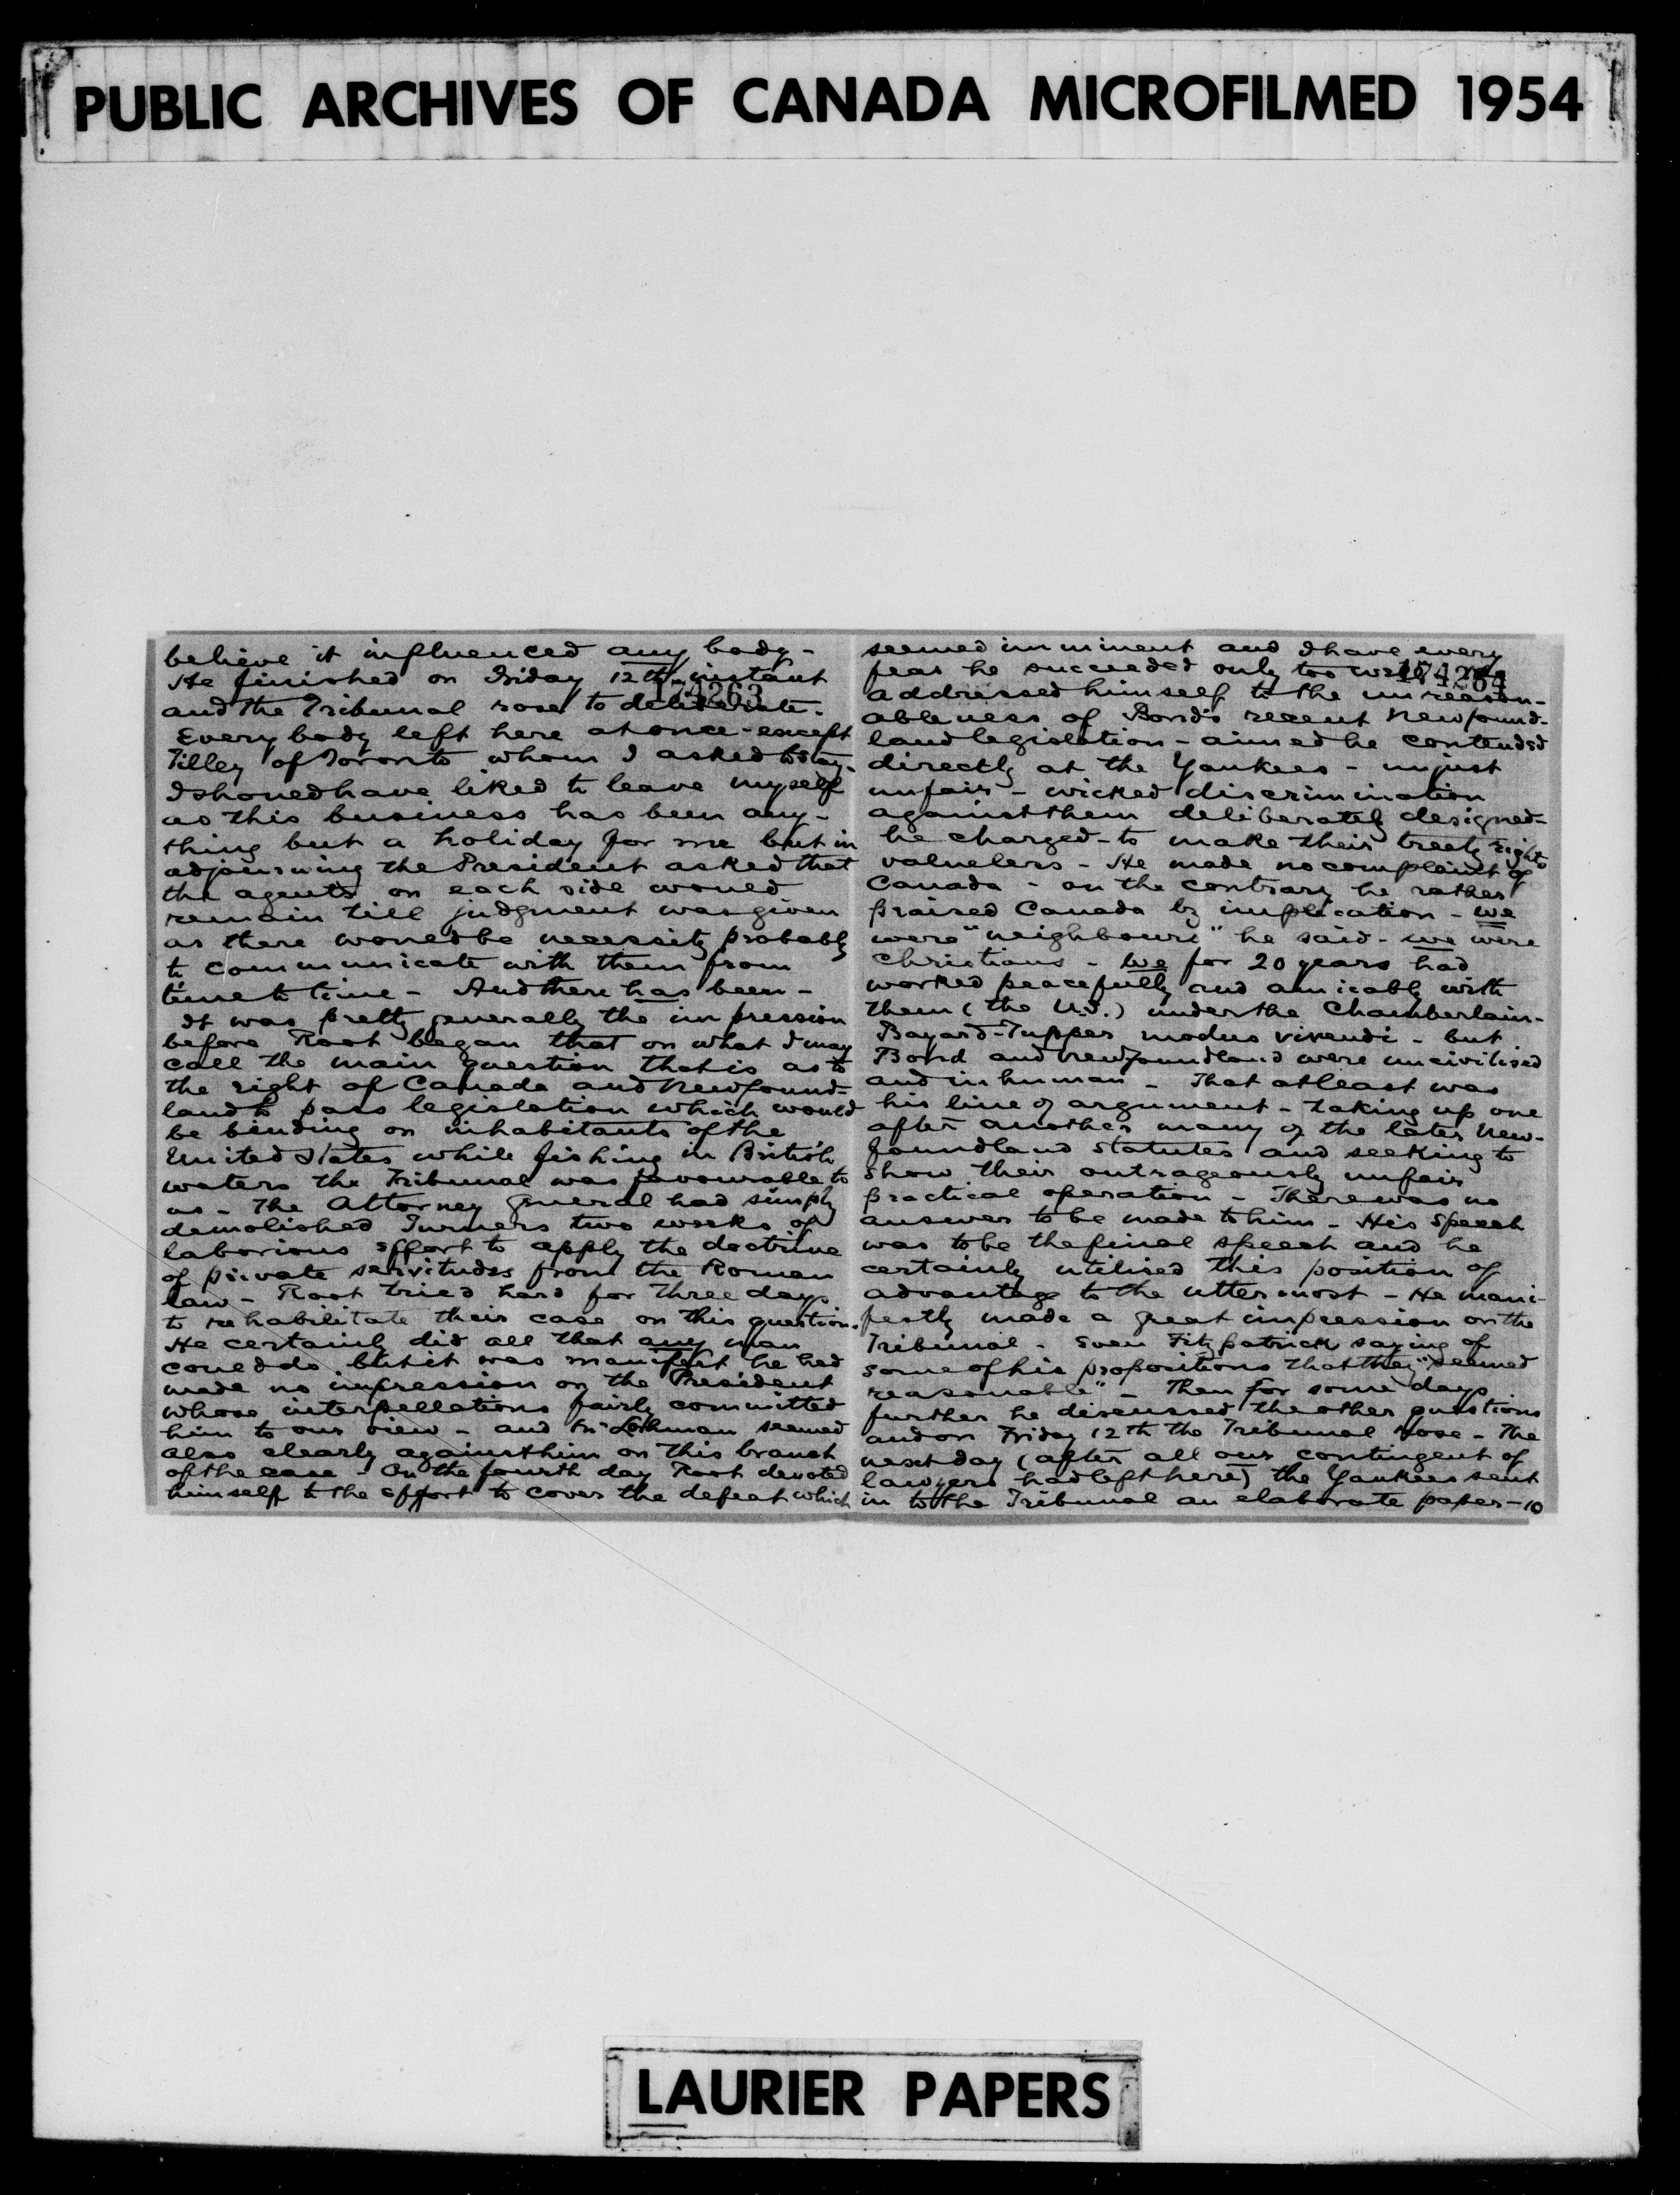 PUBLIC ARCHIVES OF CANADA MICROFILMED 1954
believe it influenced any body -
He finished on Friday 12th instant
174263
and the Tribunal rose to deliberate.
Every body left here at once - except
Tilley of Toronto whom I asked to stay.
I shoued have liked to leave myself
as this business has been any-
thing but a holiday for me but in
adjourning the President asked that
the agents on each side woued
remain till judgment was given
as there woued be necessity probably
to communicate with them from
time to time - And there has been -
It was pretty generally the impression
before Root began that on what I may
call the main question that is as to
the right of Canada and Newfound-
land to pass legislation which would
be binding on inhabitants of the
United States while fishing in British
waters the Tribunal was favourable to
us - The Attorney General had simply
demolished Turners two weeks of
laborious effort to apply the doctrine
of private servitudes from the Roman
law - Root tried hard for three days
to rehabilitate their case on this question.
He certainly did all that any man
coued do but it was manifest he had
made no impression on the President
whose interpellations fairly committed
him to our view - and Lohman seemed
also clearly against him on this branch
of the case - On the fourth day Root devoted
himself to the effort to cover the defeat which
seemed imminent and I have every
fear he succeeded only too well. He
174264
addressed himself to the unreason-
ableness of Bond's recent Newfound-
land legislation - aimed he contended
directly at the Yankees - unjust
unfair - wicked discrimination
against them deliberately designed -
he charged - to make their treaty rights
valueless - He made no complaint of
Canada - on the contrary he rather
praised Canada by implication - we
were "neighbours" he said - we were
Christians - we for 20 years had
worked peacefully and amicably with
them (the U.S.) under the Chamberlain-
Bayard-Tupper modus vivendi - but
Bond and Newfoundland were uncivilised
and inhuman - That at least was
his line of argument - taking up one
after another many of the later New-
foundland statutes and seeking to
show their outrageously unfair
practical operation - There was no
answer to be made to him - His speech
was to be the final speech and he
certainly utilised this position of
advantage to the uttermost - He mani-
festly made a great impression on the
Tribunal - even Fitzpatrick saying of
some of his propositions that they "seemed
reasonable" - Then for some days
further he discussed the other questions
and on Friday 12th the Tribunal rose - The
next day (after all our contingent of
lawyers had left here) the Yankees sent
in to the Tribunal an elaborate paper - 10
LAURIER PAPERS